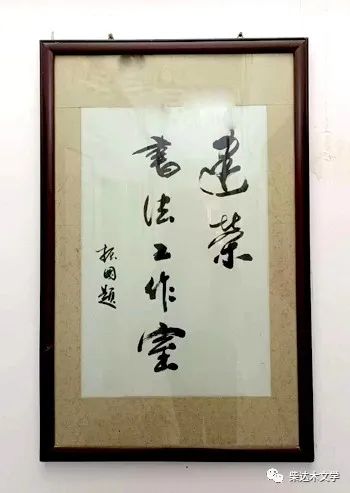 建荣
书法工作室
振国题
柴达木文学